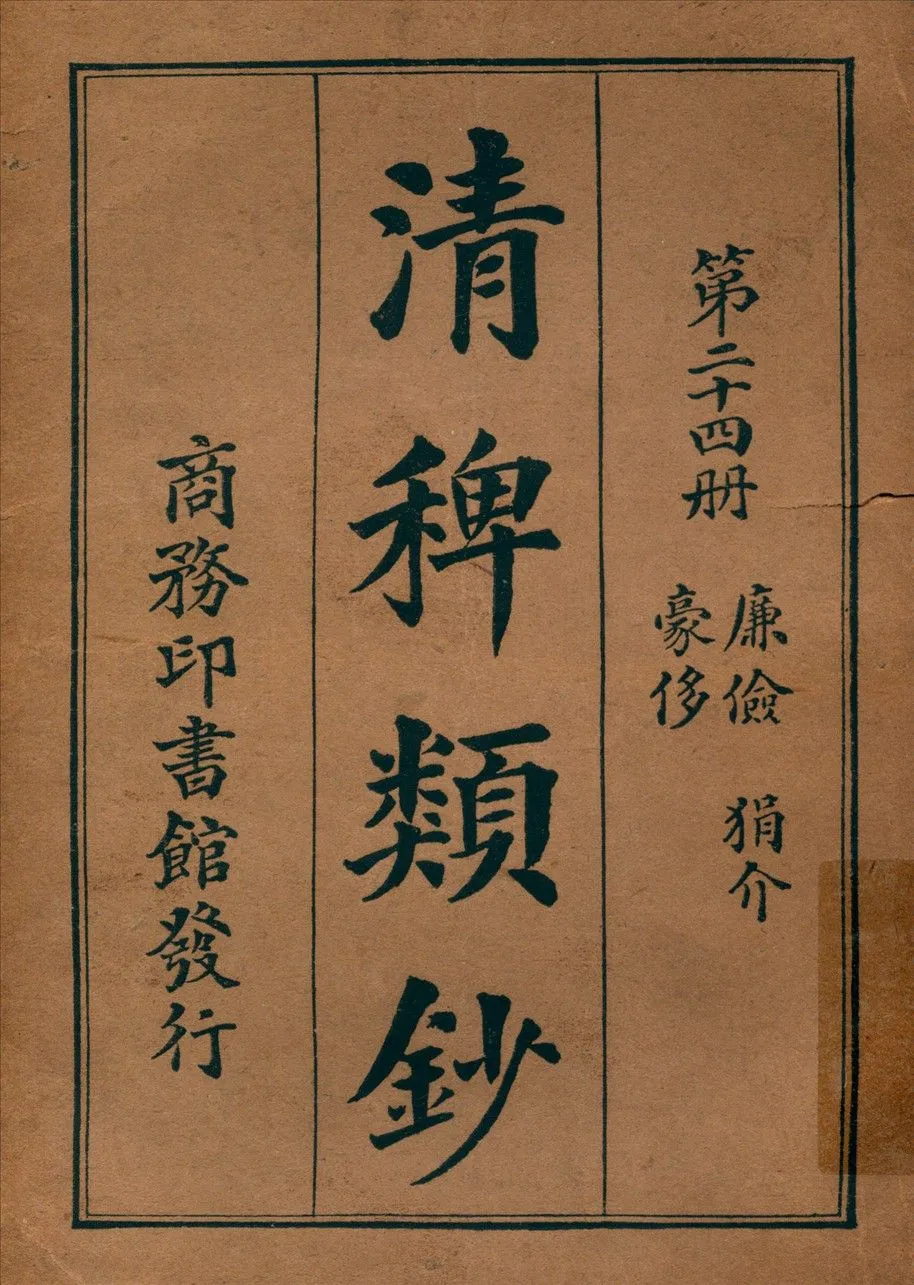 第二十四册
廉儉 狷介
豪侈
清稗類鈔
商務印書館發行